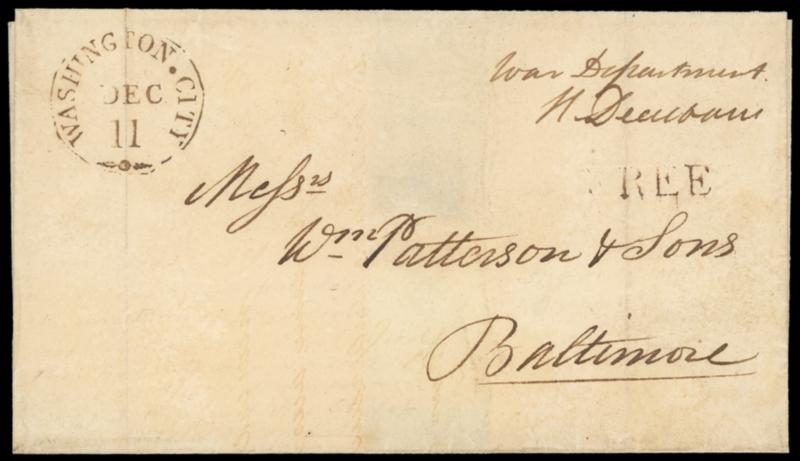 WASHINGTON • CITY
DEC
11
War Department.
H. Dearborn
FREE
Messrs
Wm Patterson & Sons
Baltimore